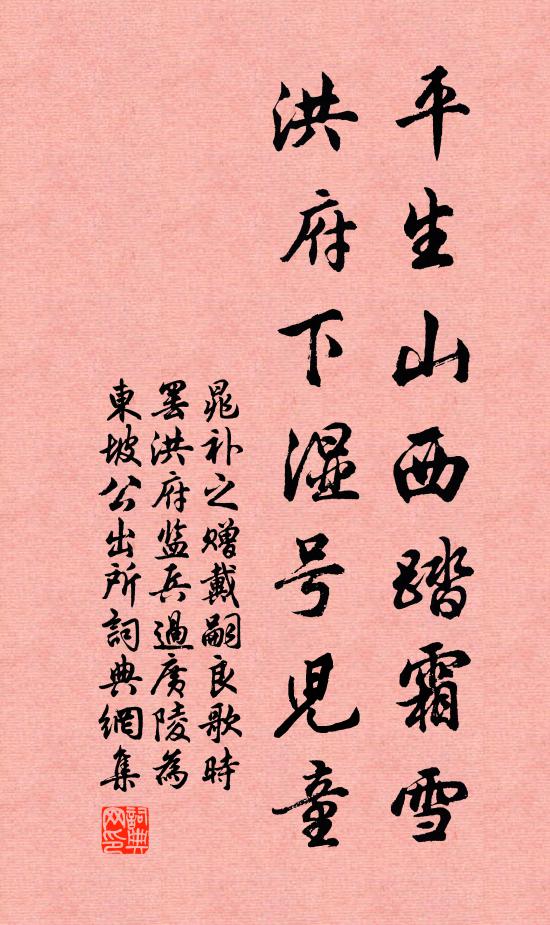 平生山西踏霜雪
洪府下湿号児童
晁补之赠戴嗣良歌时
罢洪府监兵過廣陵為
東坡公出所詞典網集
詞典网印